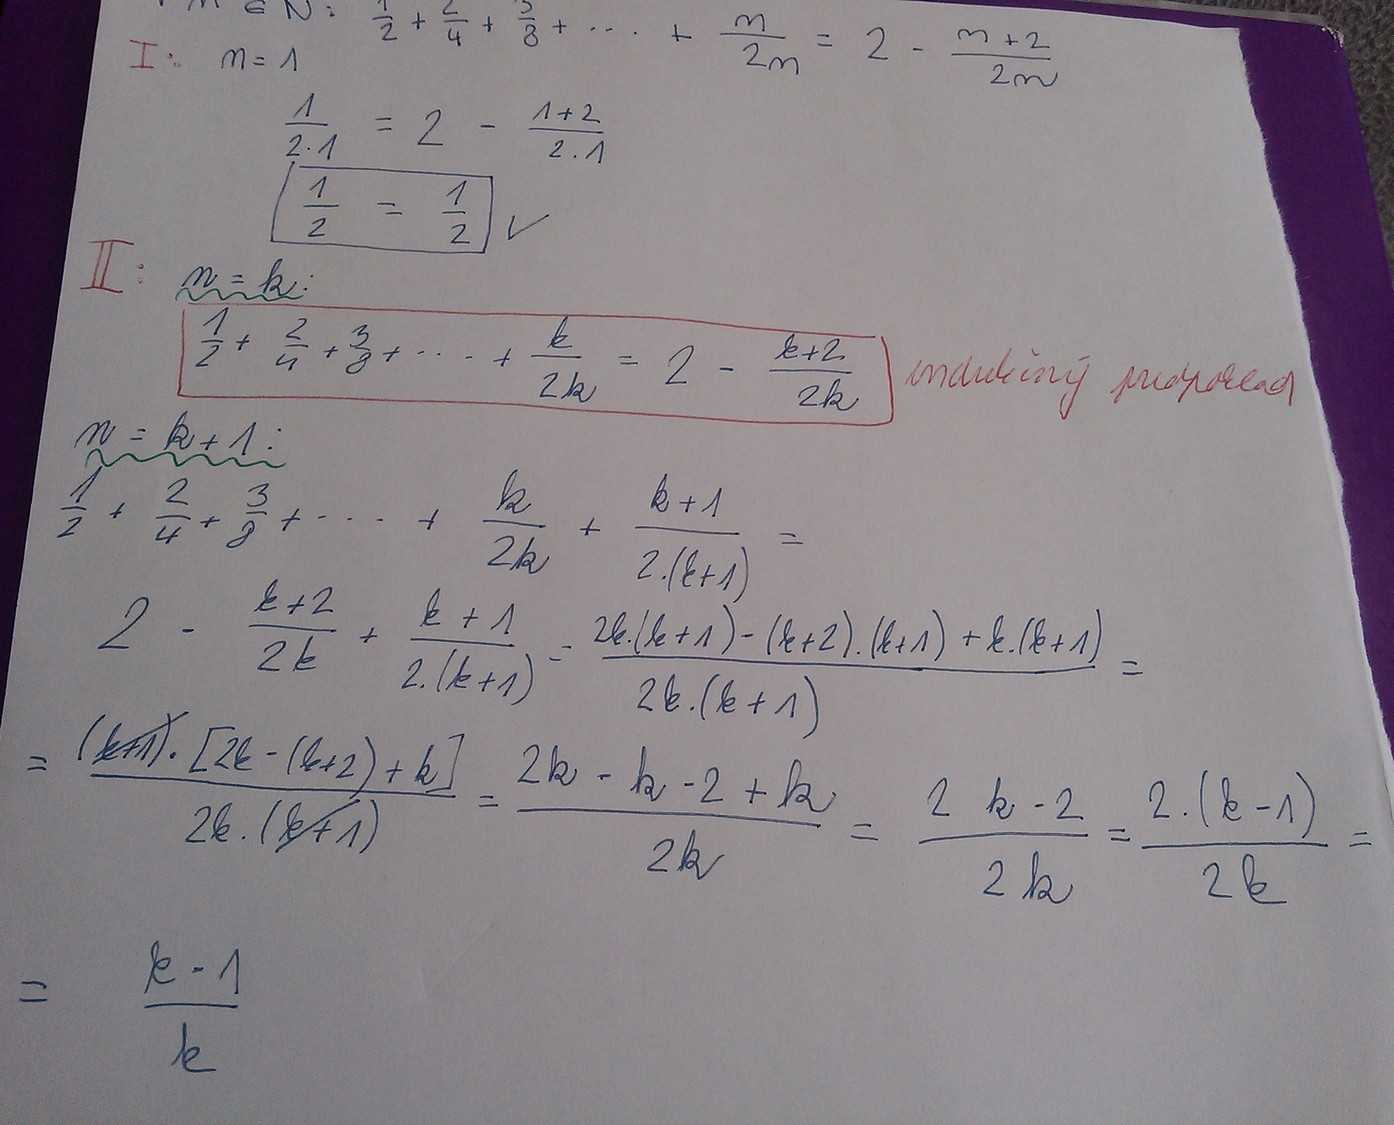 ∀ n ∈ N: 1/2 + 2/4 + 3/8 + .... + n/2n = 2 - n+2/2n
I: n = 1
1/2·1 = 2 - 1+2/2·1
1/2 = 1/2 ✓
II: n = k:
1/2 + 2/4 + 3/8 + .... + k/2k = 2 - k+2/2k indukčný predpoklad
n = k+1:
1/2 + 2/4 + 3/8 + .... + k/2k + k+1/2.(k+1) =
2 - k+2/2k + k+1/2.(k+1) = 2k.(k+1)-(k+2).(k+1)+k.(k+1)/2k.(k+1) =
= (k+1).[2k-(k+2)+k]/2k.(k+1) = 2k-k-2+k/2k = 2k-2/2k = 2.(k-1)/2k =
= k-1/k